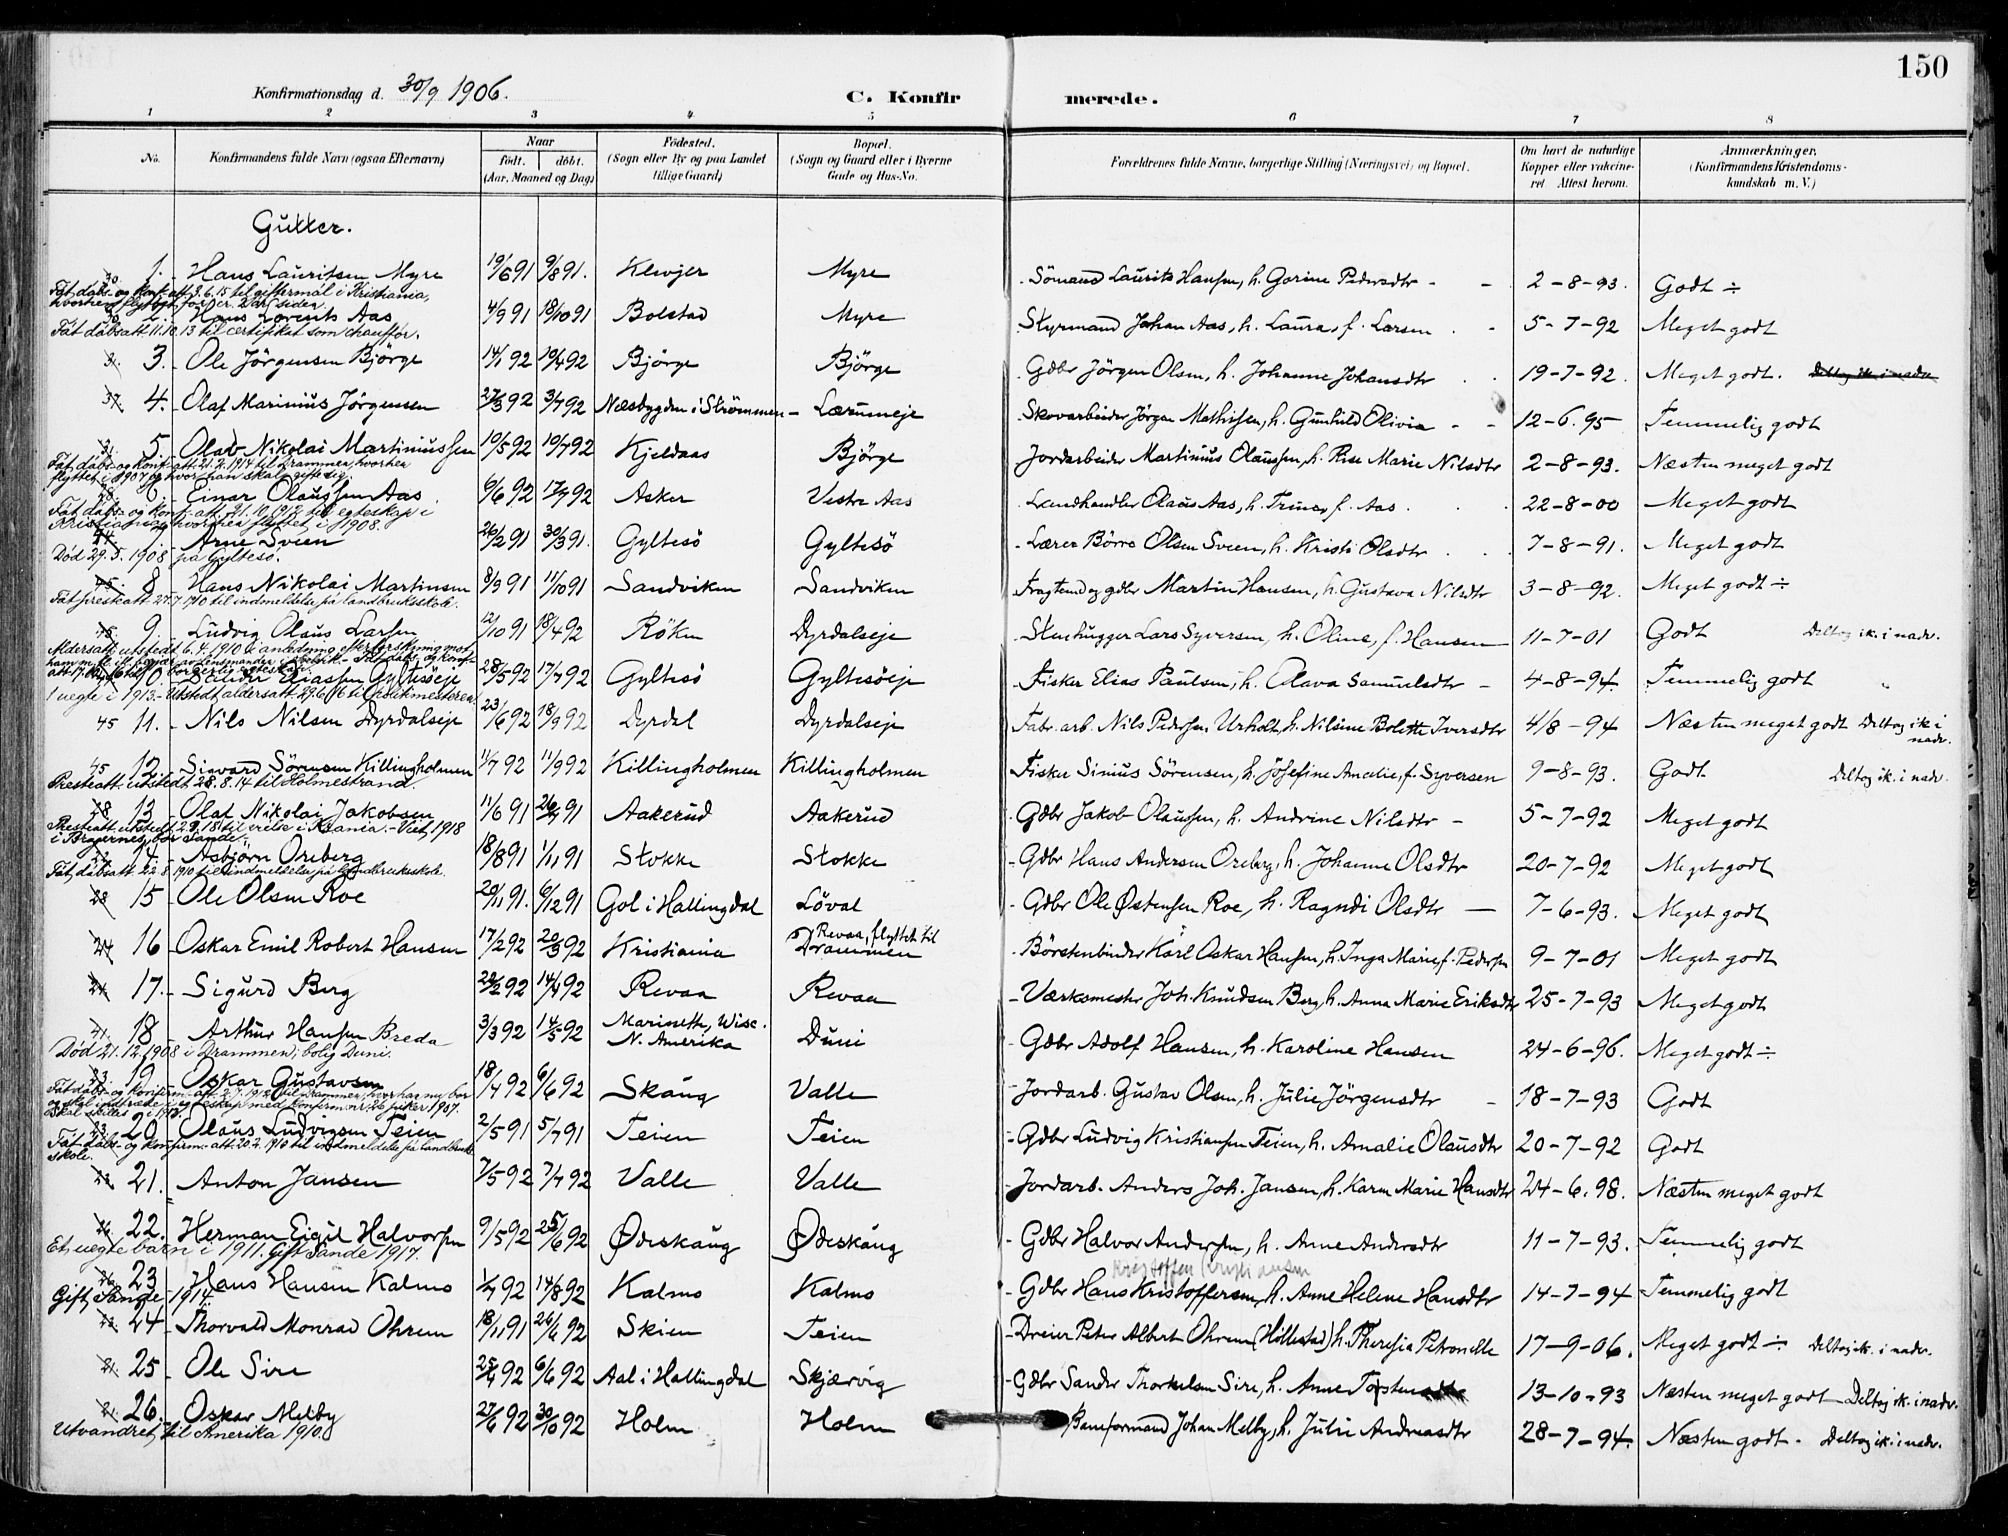 150
Konfirmationsdag d. 30/9 1906.
C. Konfirmerede.
1 2 3 4 5 6 7 8
No. Konfirmandens fulde Navn (ogsaa Efternavn) Naar født. døbt. (Aar, Maaned og Dag) Födested. (Sogn eller By og paa Landet tillige Gaard) Bopæl. (Sogn og Gaard eller i Byerne Gade og Hus-No. Forældrenes fulde Navne, borgerlige Stilling (Næringsvei) og Bopæl. Om havt de naturlige Kopper eller vakcineret Attest herom. Anmærkninger. (Konfirmandens Kristendomskundskab m. V.)
Gutter.
1. Hans Lauritsen Myre 19/6 91 9/8 91. Klevjer Myre Sömand Laurits Hansen, h. Gorine Pedersdtr 2-8-93. Godt ÷
Fåt dåbs- og konf. att. 3.6.15 til giftermål i Kristiania,
2. Hans Lorents Aas 4/9 91 18/10 91 Bolstad Myre Styrmand Johan Aas, h. Laura, f. Larsen 5-7-92 Meget godt
Fåt dåbsatt. 11.10.13 til certifikat som chauffør.
3. Ole Jörgensen Björge 14/1 92 19/4 92 Björge Björge Gdbr Jörgen Olsen, h. Johanne Johansdtr 19-7-92. Meget godt. Deltog ik. i nadv.
4. Olaf Marinius Jörgensen 27/3 92 3/7 92 Næsbygden i Strömmen Lærumeje Skovarbeider Jörgen Mathissen, h. Gunhild Olivia 12-6.95 Temmelig godt
5 Olav Nikolai Martiniussen 10/5 92 10/7 92 Kjeldaas Björge Jordarbeider Martinius Olaussen, h. Rise Marie Nilsdtr 2-8-93. Næsten meget godt
Fåt dåbs- og konf. att. 21.2.1914 til Drammen, hvorhen
flyttet i 1907 og hvor han skal gifte sig.
6. Einar Olaussen Aas 6/6 92 17/7 92 Asker Vestre Aas Landhandler Olaus Aas, h. Trine, f. Aas 22-8-00 Meget godt
Fåt dåbs- og konf. att. 21.10.1912 til egteskap i
Kristiania, hvorhen flyttet i 1908.
7. Arne Sveen 26/2 91 30/3 91. Gyltesö Gyltesö Lærer Börre Olsen Sveen, h. Kristi Olsdtr 7-8-91. Meget godt
Död 29.5.1908 på Gyltesö.
8 Hans Nikolai Martinsen 8/9 91 11/10 91 Sandviken Sandviken Fragtemd og gdbr Martin Hansen, h. Gustava Nilsdtr 3-8-92. Meget godt ÷
Fåt presteatt 27.7.1910 til indmeldelse på landbruksskole.
9 Ludvig Olaus Larsen 12/10 91 18/4 92 Röken Dyrdalseje Stenhugger Lars Syversen, h. Oline, f. Hansen 11-7-01 Godt Deltog ik. i nadv.
Aldersatt. utstedt 6.4.1910 i anledning efterforskning mot
10. Eliassen Gyltesöeje 28/5 92 17/7 92 Gyltesö Gyltesöeje Fisker Elias Paulsen, h. Olava Samuelsdtr 4-8-94. Temmelig godt
1 uegte i 1913. Utstedt aldersatt. 29.6.16 til politimesteren
45 11. Nils Nilsen Dyrdalseje 23/6 92 18/9 92 Dyrdal Dyrdalseje Fabr. arb. Nils Pedersen Urholt, h. Nilsine Bolette Iversdtr 4/8-94 Næsten meget godt Deltog ik i nadv.
45 12. Sigvard Sörensen Killingholmen 1/7 92 11/9 92 Killingholmen Killingholmen Fisker Sinius Sörensen, h. Josefine Amalie, f. Syversen 9-8-93. Godt Deltog ik. i nadv.
Presteatt. utstedt 28.8.14 til Holmestrand.
13 Olaf Nikolai Jakobsen 11/6 91 26/7 91 Aakerud Aakerud Gdbr Jakob Olaussen, h. Andrine Nilsdtr 5-7-92 Meget godt
i Bragernes, bor Sande.
14 Asbjörn Oreberg 18/8 91 1/11 91 Stokke Stokke Gdbr Hans Andersen Oreberg, h. Johanne Olsdtr 20-7-92 Meget godt
Fåt dåbsatt. 22.8.1910 til indmeldelse på landbruksskole.
15 Ole Olsen Roe 20/11 91. 6/12 91 Gol i Hallingdal Löval Gdbr Ole Østensen Roe, h. Ragndi Olsdtr 7-6-93. Meget godt
16 Oskar Emil Robert Hansen 17/2 92 20/3 92 Kristiania Revaa, flyttet til Drammen Börstenbinder Karl Oskar Hansen, h. Inga Marie f. Pedersen 9-7-01 Meget godt
17. Sigurd Berg 22/2 92 14/4 92 Revaa Revaa Værksmester Joh. Knudsen Berg, h. Anna Marie Eriksdtr 25-7-93 Meget godt
41. 18 Arthur Hansen Breda 3/3 92 14/5 92 Marinette, Wisc. N. Amerika Duni Gdbr Adolf Hansen, h. Karoline Hansen 24-6-96. Meget godt ÷
Död 21.12.1908 i Drammen; bolig Duni.
19 Oskar Gustavsen 18/4 92 6/6 92 Skaug Valle Jordarb. Gustav Olsen, h. Julie Jörgensdtr 18-7-93 Godt
Fåt dåbs- og konfirm. att. 2.7.1912 til Drammen, hvor han nu bor
og skal indtræde i egteskap med konfirm. nr. 26 piker 1907.
20 Olaus Ludvigsen Teien 2/5 91 5/7 91 Teien Teien Gdbr Ludvig Kristiansen Teien, h. Amalie Olausdtr 20-7-92 Godt
Fåt dåbs- og konfirm. att. 20.2.1910 til indmeldelse på landbruks-
skole.
21. Anton Jansen 7/5 92 7/7 92 Valle Valle Jordarb. Anders Joh. Jansen, h. Karen Marie Hansdtr 24-6.98. Næsten meget godt
22. Herman Eigil Halvorsen 9/5 92 25/6 92 Ødeskaug Ødeskaug Gdbr Halvor Andersen, h. Anne Andersdtr 11-7-93. Temmelig godt
Et uegte barn i 1911. Gift Sande 1917.
Kristoffen Kristiansen
23 Hans Hansen Kalmo 1/7 92 14/8 92 Kalmo Kalmo Gdbr Hans Kristoffersen, h. Anne Helene Hansdtr 14-7-94 Temmelig godt
Gift, Sande 1914.
24 Thorvald Monrad Ohrem 18/11 91 26/6 92 Skien Teien Dreier Peter Albert Ohrem (Hillestad) h. Theresia Petronelle 17-9-06. Meget godt ÷ Deltog ik. i nadv.
25 Ole Sire 25/4 92 6/6 92 Aal i Hallingdal Skjærvig Gdbr Sander Thorkelsen Sire, h. Anne Torstensdtr 13-10-93 Næsten meget godt Deltog ik. i nadv.
26 Oskar Melby 27/6 92 30/10 92 Holm Holm Baneformand Johan Melby, h. Julie Andreasdtr 28-7-94. Næsten godt. Deltog ik. i nadv.
Utvandret til Amerika 1910.